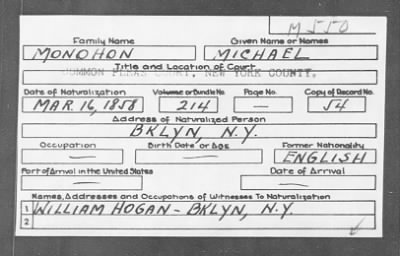 M550
Family Name Given Name or Names
MONOHON MICHAEL
Title and Location of Court
COMMON PLEAS COURT, NEW YORK COUNTY.
Date of Naturalization Volume or Bundle No. Page No. Copy of Record No.
MAR. 16, 1858 214 — 54
Address of Naturalized Person
BKLYN, N.Y.
Occupation Birth Date or Age Former Nationality
— — ENGLISH
Port of Arrival in the United States Date of Arrival
— —
Names, Addresses and Occupations of Witnesses To Naturalization
1 WILLIAM HOGAN - BKLYN, N.Y.
2